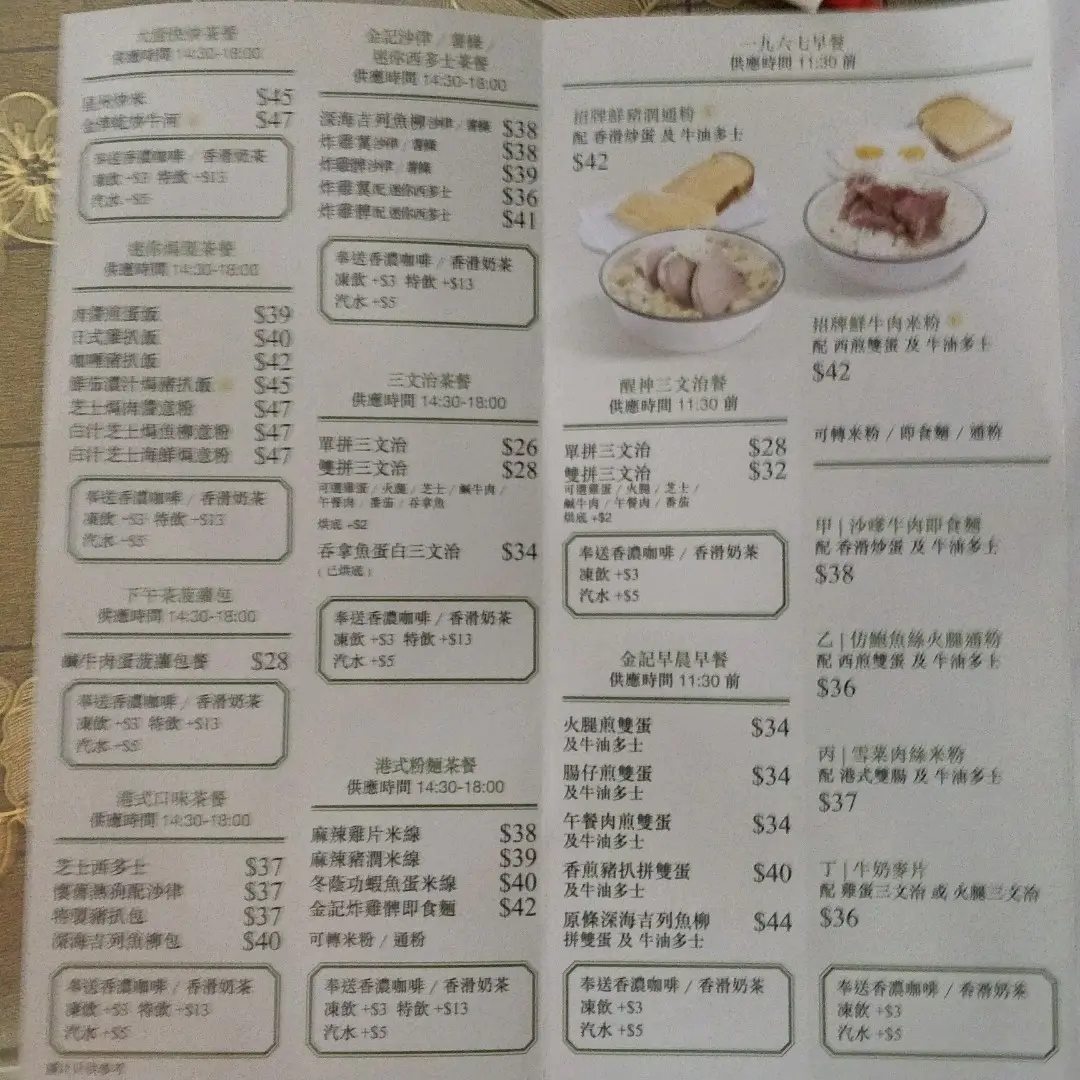 茶餐
供應時間 14:30-18:00
星州炒米 $45
金牌乾炒牛河 $47
奉送香濃咖啡 / 香滑奶茶
凍飲 +$3 特飲 +$13
汽水 +$5
迷你焗製茶餐
供應時間 14:30-18:00
肉醬煎蛋飯 $39
日式雞扒飯 $40
咖喱豬扒飯 $42
鮮茄濃汁焗豬扒飯 $45
芝士焗肉醬意粉 $47
白汁芝士焗魚柳意粉 $47
白汁芝士海鮮焗意粉 $47
奉送香濃咖啡 / 香滑奶茶
凍飲 +$3 特飲 +$13
汽水 +$5
下午茶菠蘿包
供應時間 14:30-18:00
鹹牛肉蛋菠蘿包餐 $28
奉送香濃咖啡 / 香滑奶茶
凍飲 +$3 特飲 +$13
汽水 +$5
港式口味茶餐
供應時間 14:30-18:00
芝士西多士 $37
懷舊熱狗配沙律 $37
特製豬扒包 $37
深海吉列魚柳包 $40
奉送香濃咖啡 / 香滑奶茶
凍飲 +$3 特飲 +$13
汽水 +$5
圖片只供參考
金記沙律 / 薯條 /
迷你西多士茶餐
供應時間 14:30-18:00
深海吉列魚柳 沙律 / 薯條 $38
炸雞翼 沙律 / 薯條 $38
炸雞髀 沙律 / 薯條 $39
炸雞翼 配 迷你西多士 $36
炸雞髀 配 迷你西多士 $41
奉送香濃咖啡 / 香滑奶茶
凍飲 +$3 特飲 +$13
汽水 +$5
三文治茶餐
供應時間 14:30-18:00
單拼三文治 $26
雙拼三文治 $28
可選雞蛋 / 火腿 / 芝士 / 鹹牛肉 /
午餐肉 / 番茄 / 吞拿魚
烘底 +$2
吞拿魚蛋白三文治 $34
( 已烘底 )
奉送香濃咖啡 / 香滑奶茶
凍飲 +$3 特飲 +$13
汽水 +$5
港式粉麵茶餐
供應時間 14:30-18:00
麻辣雞片米線 $38
麻辣豬潤米線 $39
冬蔭功蝦魚蛋米線 $40
金記炸雞髀即食麵 $42
可轉米粉 / 通粉
奉送香濃咖啡 / 香滑奶茶
凍飲 +$3 特飲 +$13
汽水 +$5
一九六七早餐
供應時間 11:30 前
招牌鮮豬潤通粉
配 香滑炒蛋 及 牛油多士
$42
醒神三文治餐
供應時間 11:30 前
單拼三文治 $28
雙拼三文治 $32
可選雞蛋 / 火腿 / 芝士 /
鹹牛肉 / 午餐肉 / 番茄
烘底 +$2
奉送香濃咖啡 / 香滑奶茶
凍飲 +$3
汽水 +$5
金記早晨早餐
供應時間 11:30 前
火腿煎雙蛋 $34
及牛油多士
腸仔煎雙蛋 $34
及牛油多士
午餐肉煎雙蛋 $34
及牛油多士
香煎豬扒拼雙蛋 $40
及牛油多士
原條深海吉列魚柳 $44
拼雙蛋 及 牛油多士
奉送香濃咖啡 / 香滑奶茶
凍飲 +$3
汽水 +$5
招牌鮮牛肉米粉
配 西煎雙蛋 及 牛油多士
$42
可轉米粉 / 即食麵 / 通粉
甲 | 沙嗲牛肉即食麵
配 香滑炒蛋 及 牛油多士
$38
乙 | 仿鮑魚絲火腿通粉
配 西煎雙蛋 及 牛油多士
$36
丙 | 雪菜肉絲米粉
配 港式雙腸 及 牛油多士
$37
丁 | 牛奶麥片
配 雞蛋三文治 或 火腿三文治
$36
奉送香濃咖啡 / 香滑奶茶
凍飲 +$3
汽水 +$5